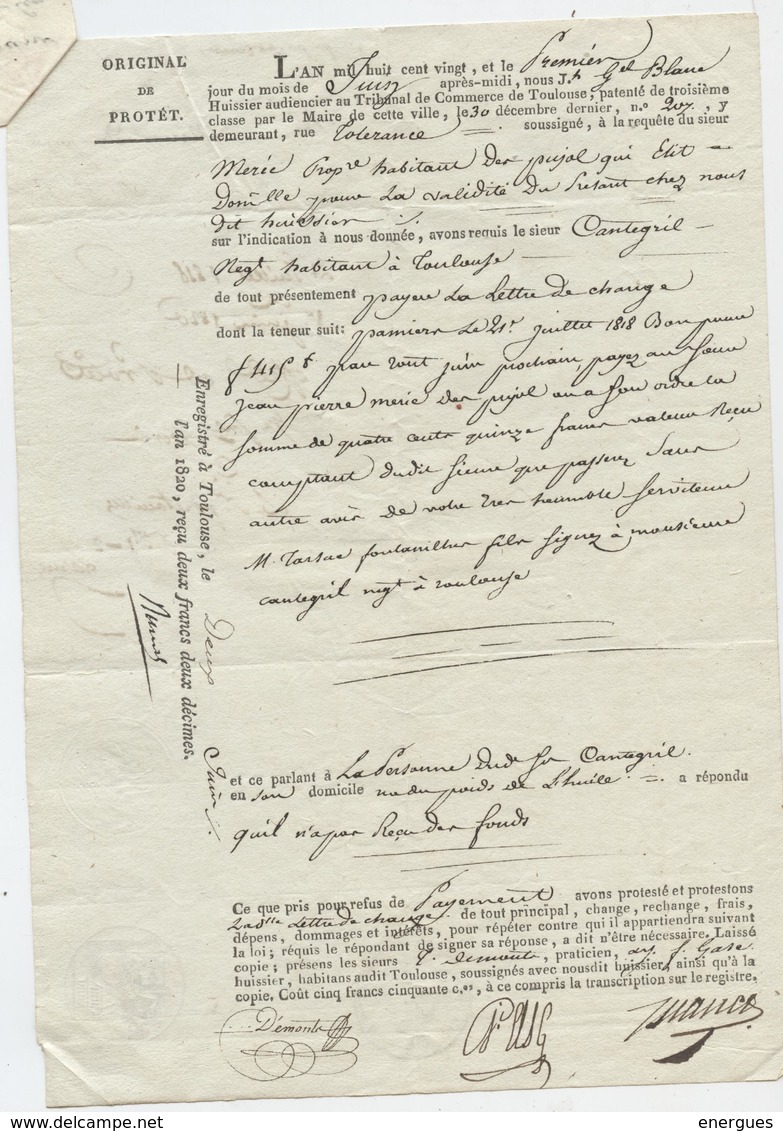 ORIGINAL
DE
PROTÊT.
L'AN mil huit cent vingt, et le Premier
jour du mois de Juin après-midi, nous J.h G.el Blanc
Huissier audiencier au Tribunal de Commerce de Toulouse, patenté de troisième
classe par le Maire de cette ville, le 30 décembre dernier, n.o 207, y
demeurant, rue Tolerance soussigné, à la requête du sieur
Meric Prop.re habitant des pujol qui Elit
Dom.lle pour La validité du Presant chez nous
dit huissier
sur l'indication à nous donnée, avons requis le sieur Cantegril
Neg.t habitant à Toulouse
de tout présentement payer La Lettre de change
dont la teneur suit: pamiers Le 21.e juillet 1818 Bon pour
f 415 f. pour tout juin prochain, payez au sieur
jean pierre meric des pujol ou a son ordre la
somme de quatre cents quinze francs valeur Reçu
comptant dudit sieur que passerez sans
autre avis de votre tres heumble serviteur
M. Tarsac fontanilhes fils signez à monsieur
cantegril neg.t à toulouse
Enregistré à Toulouse, le Deux Juin
l'an 1820, reçu deux francs deux décimes.
et ce parlant à La Personne dud. Sr Cantegril
en son domicile rue du poids de L'huile a répondu
qu'il n'a pas Reçu des fonds
Ce que pris pour refus de Payement avons protesté et protestons
Ladite Lettre de change de tout principal, change, rechange, frais,
dépens, dommages et intérêts, pour répéter contre qui il appartiendra suivant
la loi; requis le répondant de signer sa réponse, a dit n'être nécessaire. Laissé
copie; présens les sieurs Demonte, praticien, Gasc
huissier, habitans audit Toulouse, soussignés avec nousdit huissier, ainsi qu'à la
copie. Coût cinq francs cinquante c.es, à ce compris la transcription sur le registre.
Démonte
energues